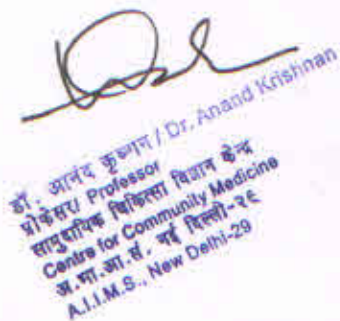 डॉ. आनंद कृष्णन / Dr. Anand Krishnan
प्रोफेसर/ Professor
सामुदायिक चिकित्सा विज्ञान केन्द्र
Centre for Community Medicine
अ.भा.आ.सं. नई दिल्ली-२९
A.I.I.M.S., New Delhi-29